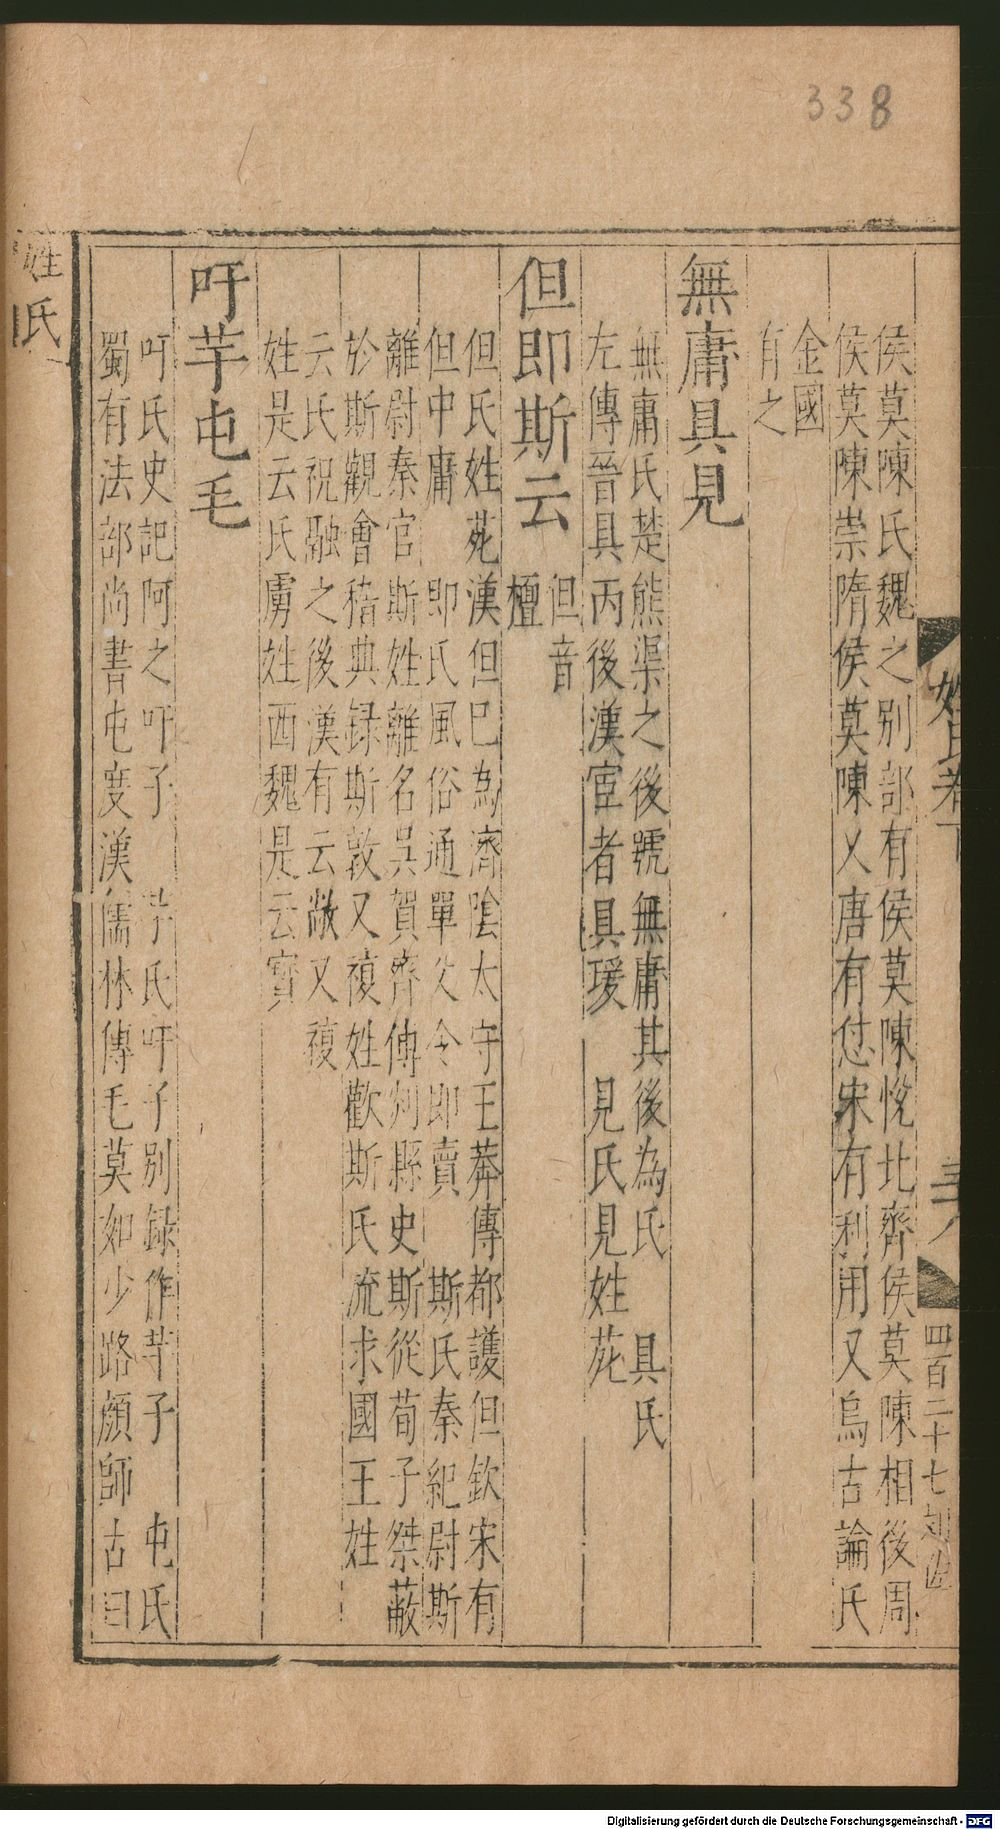 338
姓氏卷下
三八
四百二十七
侯莫陳氏魏之别部有侯莫陳悅北齊侯莫陳相後周
侯莫陳崇隋侯莫陳乂唐有怤宋有利用又烏古論氏
金國
有之
無庸具見
無庸氏楚熊渠之後號無庸其後為氏 具氏
左傳晉具丙後漢宦者具瑗 見氏見姓苑
但即斯云
但音
檀
但氏姓苑漢但巴為濟陰太守王莽傳都護但欽宋有
但中庸 即氏風俗通單父令即賣 斯氏秦紀尉斯
離尉秦官斯姓離名吳賀齊傳剡縣史斯從荀子桀蔽
於斯觀會稽典録斯敦又複姓歡斯氏流求國王姓
云氏祝融之後漢有云敞又複
姓是云氏虜姓西魏是云寶
吁芋屯毛
吁氏史記阿之吁子 芋氏吁子别録作芋子 屯氏
蜀有法部尚書屯度漢儒林傳毛莫如少路顔師古曰
姓氏
Digitalisierung gefördert durch die Deutsche Forschungsgemeinschaft - DFG